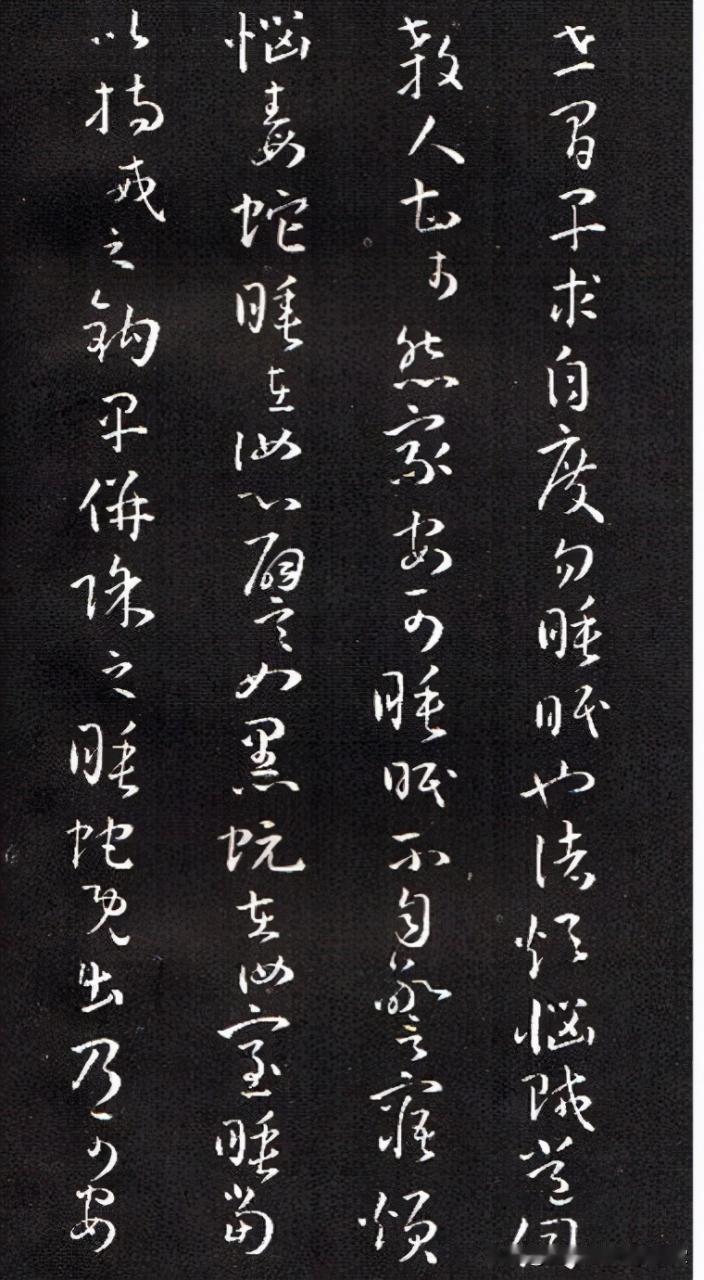 世間早求自度勿睡眠也諸煩惱賊常伺
殺人甚於怨家安可睡眠不自警寤煩
惱毒蛇睡在汝心譬如黑蚖在汝室睡當
以持戒之鈎早併除之睡蛇既出乃可安